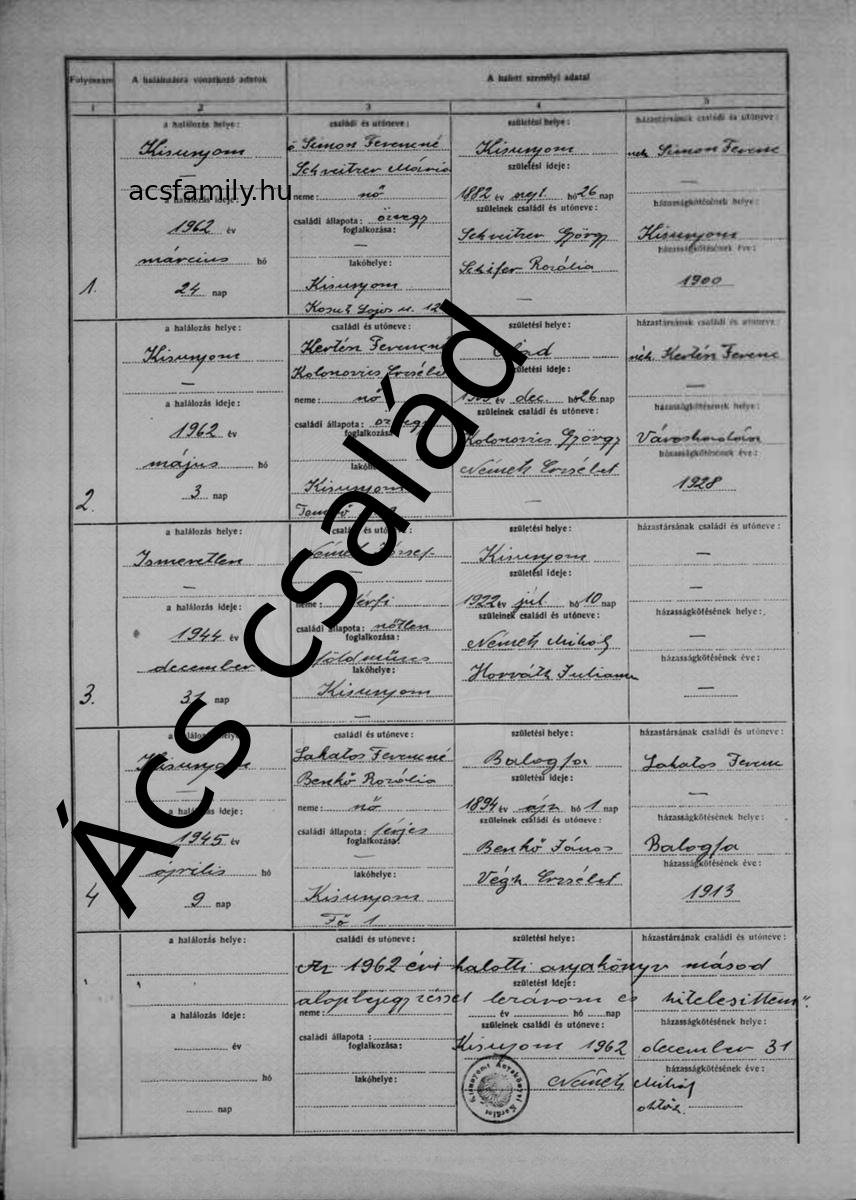 Folyószám
A halálozásra vonatkozó adatok
A halott személyi adatai
1
2
3
4
5
a halálozás helye:
Kisunyom
—
a halálozás ideje:
1962 év
március hó
1.
24 nap
családi és utóneve:
Simon Ferencné
Schveitzer Mária
neme: nő
családi állapota: özvegy
foglalkozása:
—
lakóhelye:
Kisunyom
Lajos u. 12
születési helye:
Kisunyom
születési ideje:
1882 év sept. hó 26 nap
szüleinek családi és utóneve:
Schveitzer György
Schäfer Rozália
—
házastársának családi és utóneve:
néh. Simon Ferenc
—
házasságkötésének helye:
Kisunyom
házasságkötésének éve:
1900
acsfamily.hu
Ács család
a halálozás helye:
Kisunyom
—
a halálozás ideje:
1962 év
május hó
2.
3 nap
családi és utóneve:
Kertén Ferencné
Kolonovics Erzsébet
neme: nő
családi állapota: özvegy
foglalkozása:
Kisunyom
születési helye:
születési ideje:
év dec. hó 26 nap
szüleinek családi és utóneve:
Kolonovics György
Németh Erzsébet
—
házastársának családi és utóneve:
néh. Kertén Ferenc
—
házasságkötésének helye:
házasságkötésének éve:
1928
a halálozás helye:
Ismeretlen
—
a halálozás ideje:
1944 év
december
3.
31 nap
családi és utóneve:
Németh József
—
neme: férfi
családi állapota: nőtlen
foglalkozása:
földműves
lakóhelye:
Kisunyom
—
születési helye:
Kisunyom
születési ideje:
1922 év júl hó 10 nap
szüleinek családi és utóneve:
Németh Mihály
Horváth Julianna
házastársának családi és utóneve:
—
—
házasságkötésének helye:
—
házasságkötésének éve:
—
a halálozás helye:
Kisunyom
—
a halálozás ideje:
1945 év
április hó
4
9 nap
családi és utóneve:
Lakatos Ferencné
Benkő Rozália
neme: nő
családi állapota: férjes
foglalkozása:
—
lakóhelye:
Kisunyom
Fő 1
születési helye:
Balogfa
születési ideje:
1894 év hó 1 nap
szüleinek családi és utóneve:
Benkő János
Végh Erzsébet
házastársának családi és utóneve:
Lakatos Ferenc
—
házasságkötésének helye:
Balogfa
házasságkötésének éve:
1913
a halálozás helye:
családi és utóneve:
születési helye:
házastársának családi és utóneve:
Az 1962 évi halotti anyakönyv másod
születési ideje:
alapbejegyzéssel lezárom és hitelesítem".
a halálozás ideje:
neme:
év hó nap
házasságkötésének helye:
családi állapota:
szüleinek családi és utóneve:
év
foglalkozása:
Kisunyom 1962 december 31
házasságkötésének éve:
hó
lakóhelye:
Németh Mihály
nap